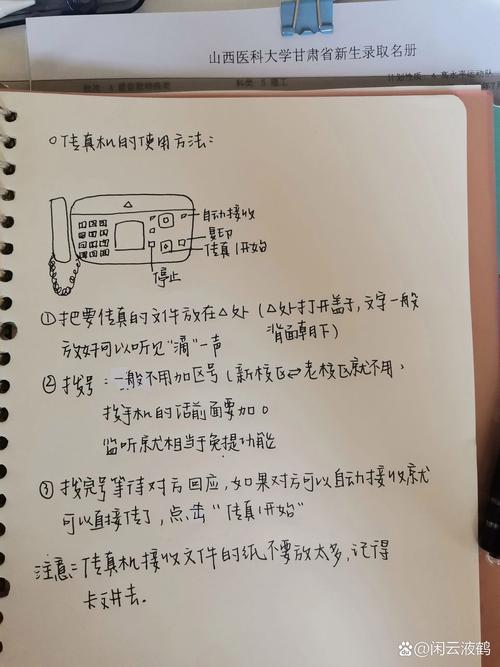 山西医科大学甘肃省新生录取名册
科类:理工
计划性质:
传真机的使用方法:
自动接收
复印
传真/开始
停止
①把要传真的文件放在△处(△处打开盖子,文字一般
放好可以听见"滴"一声 背面朝下)
②拨号:一般不用加区号(新校区↔老校区就不用,
找手机的话前面要加0
监听就相当于免提功能
③拨完号等待对方回应,如果对方可以自动接收就
可以直接传了,点击"传真/开始"
注意:传真机接收文件的纸不要放太多,记得
卡进去.
@闲云液鹤